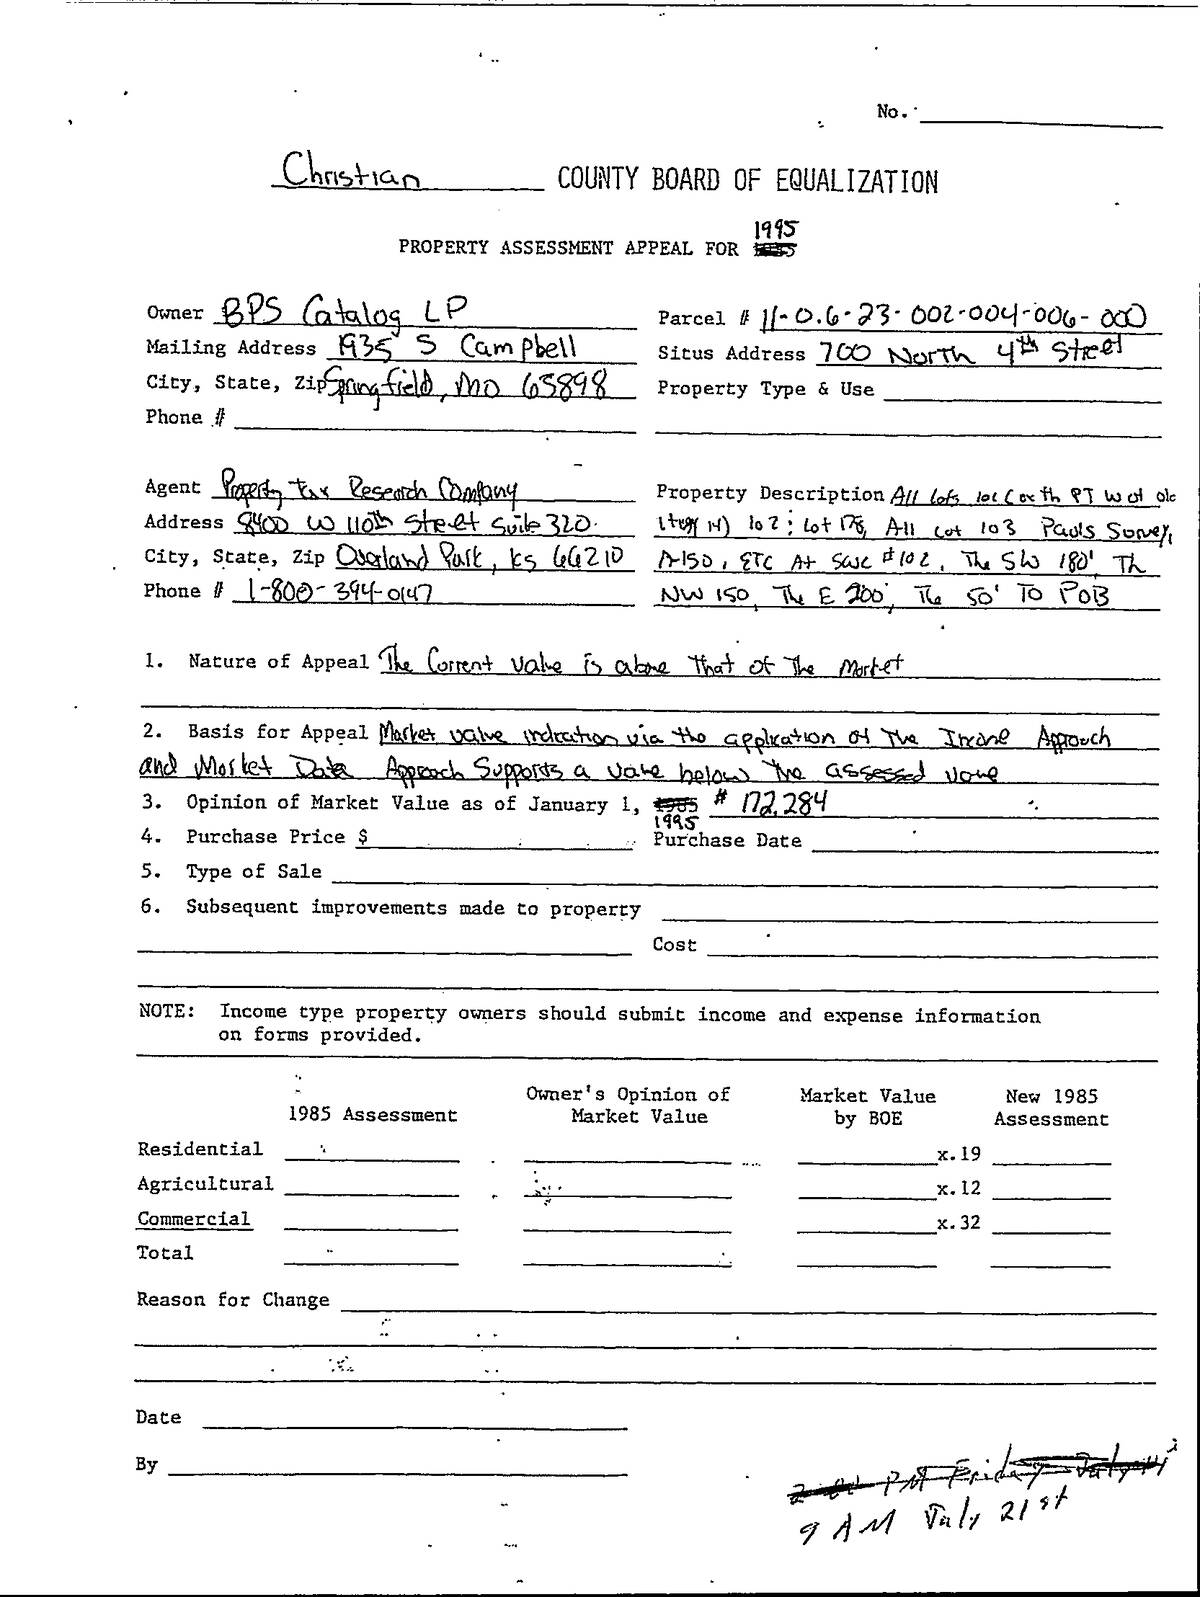 No.
Christian COUNTY BOARD OF EQUALIZATION
1995
PROPERTY ASSESSMENT APPEAL FOR 1985
Owner BPS Catalog LP
Mailing Address 1935 S Campbell
City, State, Zip Springfield, MO 65898
Phone #
Parcel # 11-0.6-23-002-004-006-000
Situs Address 700 North 4th Street
Property Type & Use
Agent Property Tax Research Company
Address 8400 W 110th Street Suite 320
City, State, Zip Overland Park, KS 66210
Phone # 1-800-394-0147
Property Description All Lots PT W of
102; Lot 178, All Lot 103 Pauls Survey,
A-150, ETC At SWC #102, The SW 180', Th
NW 150, The E 200', The 50' TO POB
1. Nature of Appeal The Current value is above that of the Market
2. Basis for Appeal Market value indication via the application of The Income Approach
and Market Data Approach Supports a value below the assessed value
3. Opinion of Market Value as of January 1, 1985 $ 172,284
1995
4. Purchase Price $ Purchase Date
5. Type of Sale
6. Subsequent improvements made to property
Cost
NOTE: Income type property owners should submit income and expense information
on forms provided.
1985 Assessment Owner's Opinion of Market Value Market Value by BOE New 1985 Assessment
Residential x.19
Agricultural x.12
Commercial x.32
Total
Reason for Change
Date
By
2:00 PM Friday July 14
9 AM July 21st